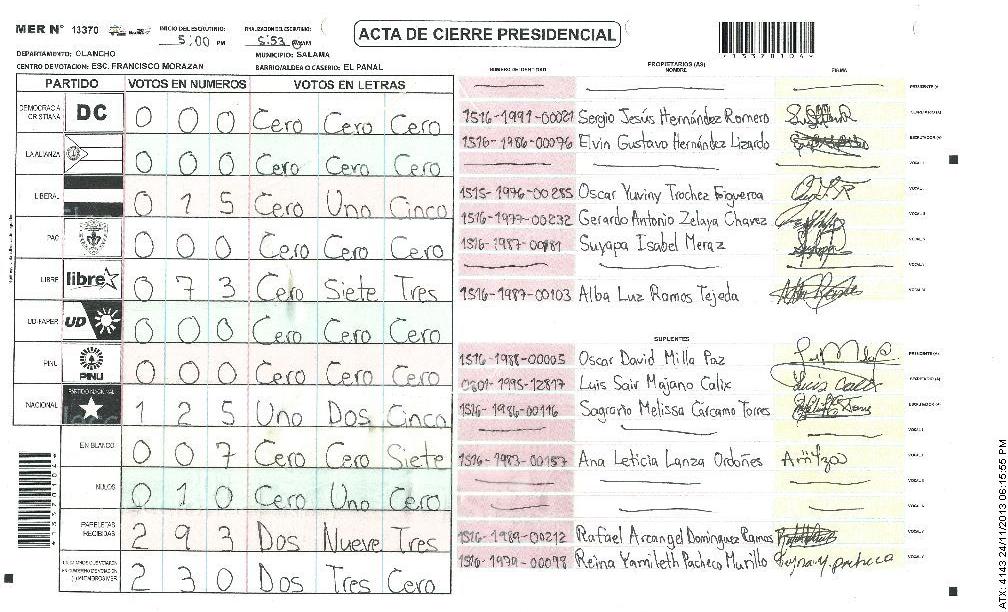 MER N° 13370
INICIO DEL ESCRUTINIO: 5:00 PM
FINALIZACION DEL ESCRUTINIO: 5:53
ACTA DE CIERRE PRESIDENCIAL
DEPARTAMENTO: OLANCHO
MUNICIPIO: SALAMA
CENTRO DE VOTACION: ESC. FRANCISCO MORAZAN
BARRIO/ALDEA O CASERIO: EL PANAL
PARTIDO VOTOS EN NUMEROS VOTOS EN LETRAS
DEMOCRACIA CRISTIANA DC 0 0 0 Cero Cero Cero
LA ALIANZA 0 0 0 Cero Cero Cero
LIBERAL 0 1 5 Cero Uno Cinco
PAC 0 0 0 Cero Cero Cero
LIBRE libre 0 7 3 Cero Siete Tres
UD-FAPER UD 0 0 0 Cero Cero Cero
PINU PINU 0 0 0 Cero Cero Cero
NACIONAL PARTIDO NACIONAL 1 2 5 Uno Dos Cinco
EN BLANCO 0 0 7 Cero Cero Siete
NULOS 0 1 0 Cero Uno Cero
PAPELETAS RECIBIDAS 2 9 3 Dos Nueve Tres
2 3 0 Dos Tres Cero
PROPIETARIOS (AS)
NUMERO DE IDENTIDAD NOMBRE FIRMA
PRESIDENTE (A)
1516-1991-00021 Sergio Jesús Hernández Romero SECRETARIO (A)
1516-1986-00076 Elvin Gustavo Hernández Lizardo ESCRUTADOR (A)
VOCAL I
1515-1976-00285 Oscar Yuviny Trochez Figueroa
1516-1977-00232 Gerardo Antonio Zelaya Chavez
1516-1987-00181 Suyapa Isabel Meraz
1516-1987-00103 Alba Luz Ramos Tejeda
SUPLENTES
1516-1988-00005 Oscar David Milla Paz PRESIDENTE (A)
0801-1995-12817 Luis Sair Majano Calix SECRETARIO (A)
1516-1986-00116 Sagrario Melissa Cárcamo Torres ESCRUTADOR (A)
VOCAL I
1516-1983-00157 Ana Leticia Lanza Ordoñes
1516-1989-00212 Rafael Arcangel Dominguez Ramos
1516-1979-00098 Reina Yamileth Pacheco Murillo
ATX: 4143 24/11/2013 06:15:55 PM